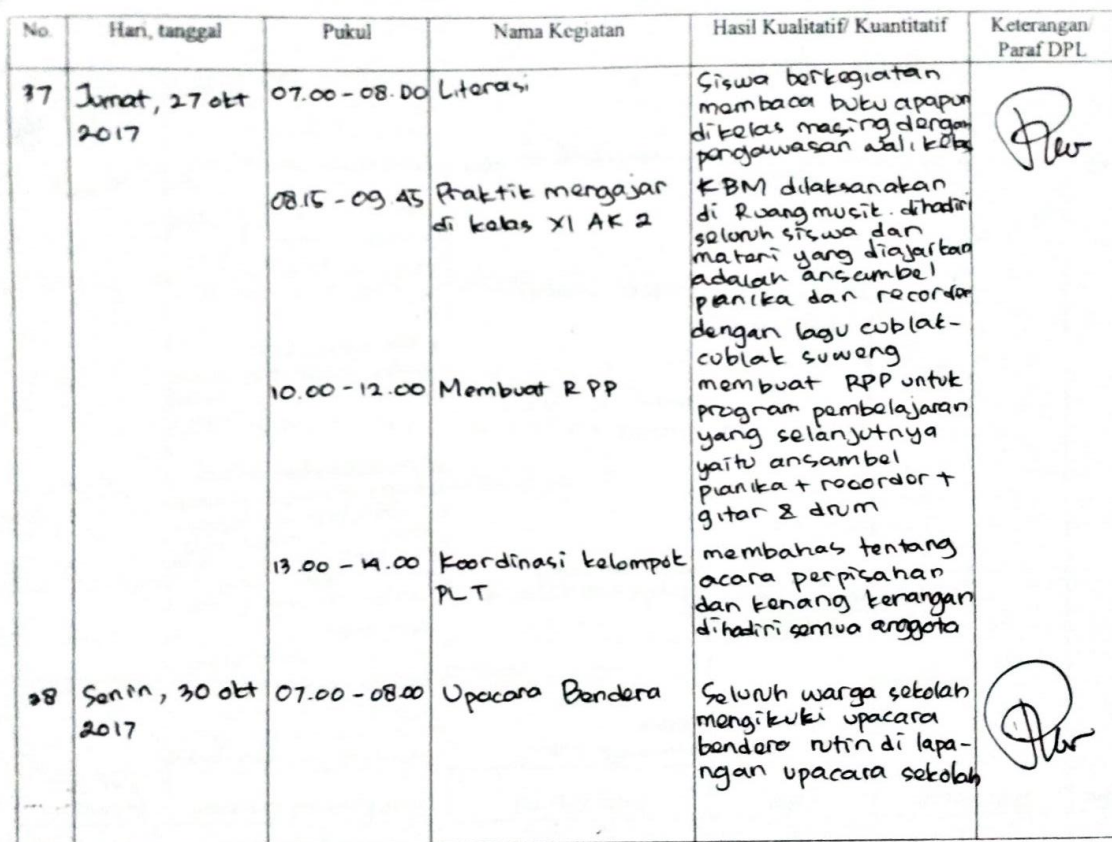 No. Hari, tanggal Pukul Nama Kegiatan Hasil Kualitatif/ Kuantitatif Keterangan/
Paraf DPL
37 Jumat, 27 okt 07.00 - 08.00 Literasi Siswa berkegiatan
2017 membaca buku apapun
dikelas masing dengan
pengawasan wali kelas
08.15 - 09.45 Praktik mengajar KBM dilaksanakan
di kelas XI AK 2 di Ruang musik. dihadiri
seluruh siswa dan
materi yang diajarkan
adalah ansambel
pianika dan recorder
dengan lagu cublak-
cublak suweng
10.00 - 12.00 Membuat RPP membuat RPP untuk
program pembelajaran
yang selanjutnya
yaitu ansambel
pianika + recorder +
gitar & drum
13.00 - 14.00 Koordinasi kelompok membahas tentang
PLT acara perpisahan
dan kenang kenangan
dihadiri semua anggota
38 Senin, 30 okt 07.00 - 08.00 Upacara Bendera Seluruh warga sekolah
2017 mengikuki upacara
bendera rutin di lapa-
ngan upacara sekolah